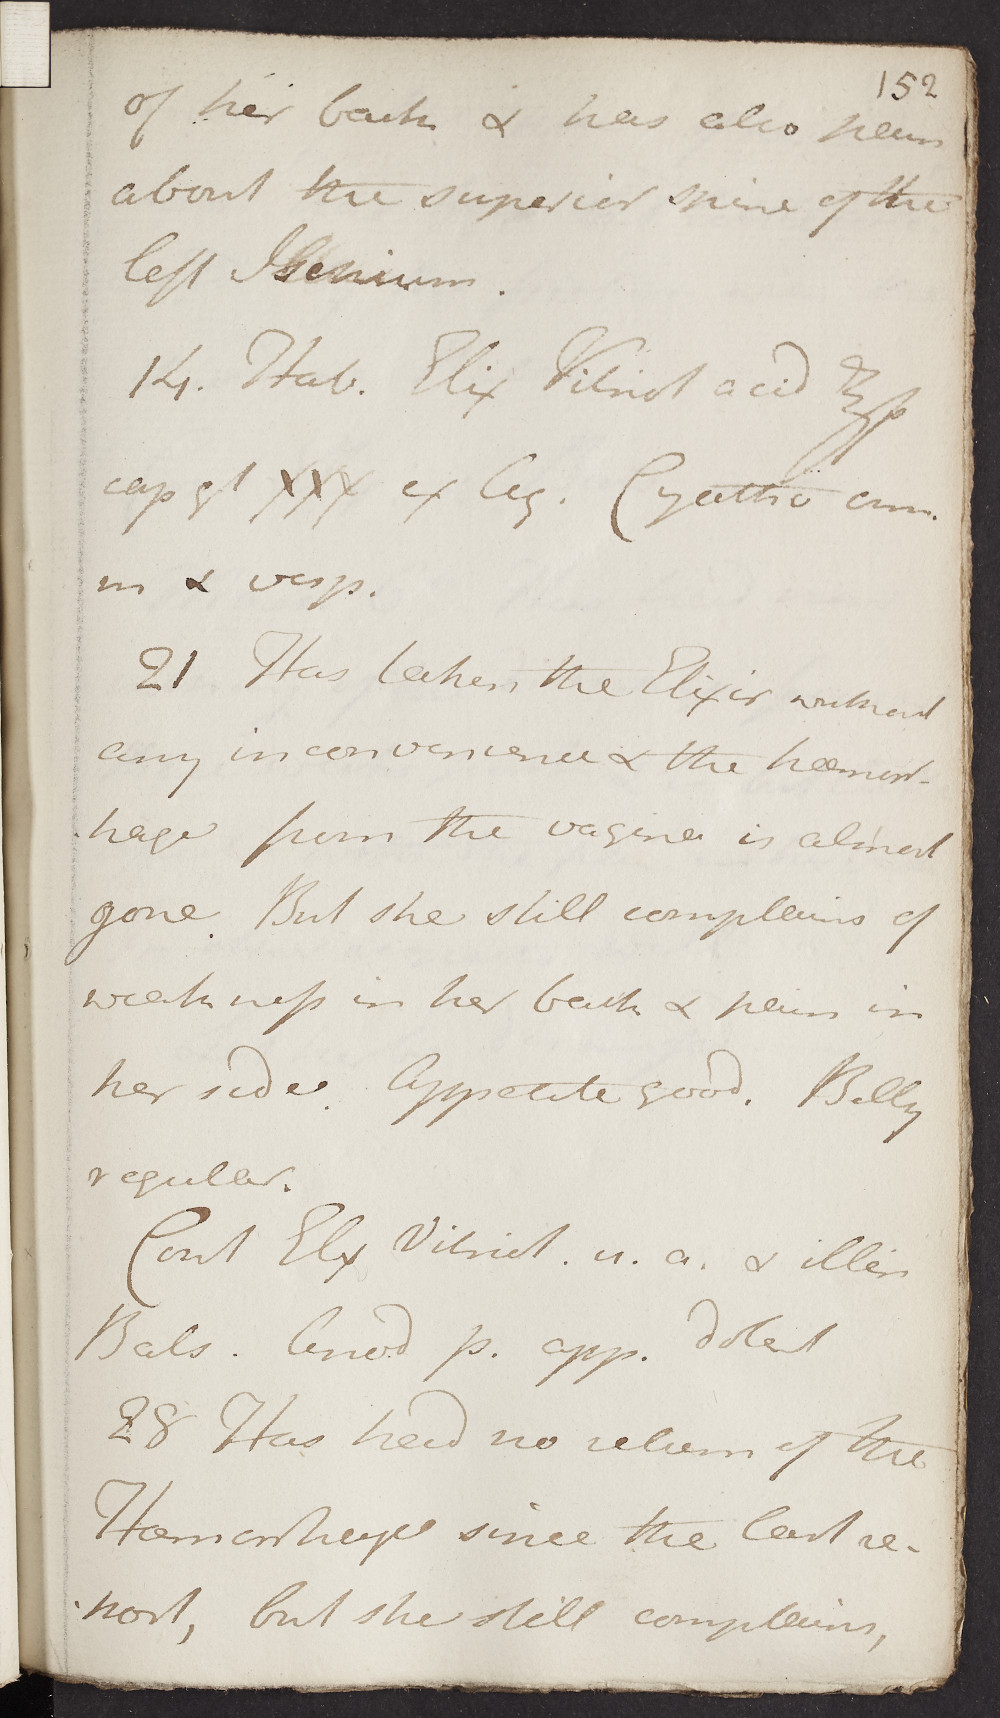 152
of her back & has also pain
about the superior spine of the
left Ischium.
14. Hab. Elix Vitriol acid ℥ss
cap gt XXX ex Aq. Cyatho om.
m & vesp.
21 Has taken the Elixir without
any inconvenience & the hæmorr-
hage from the vagina is almost
gone. But she still complains of
weakness in her back & pain in
her side. Appetite good. Belly
regular.
Cont Elix Vitriol. u. a. & illin
Bals. Anod p. app. dolent
28 Has had no return of the
Hæmorrhage since the last re-
port, but she still complains,